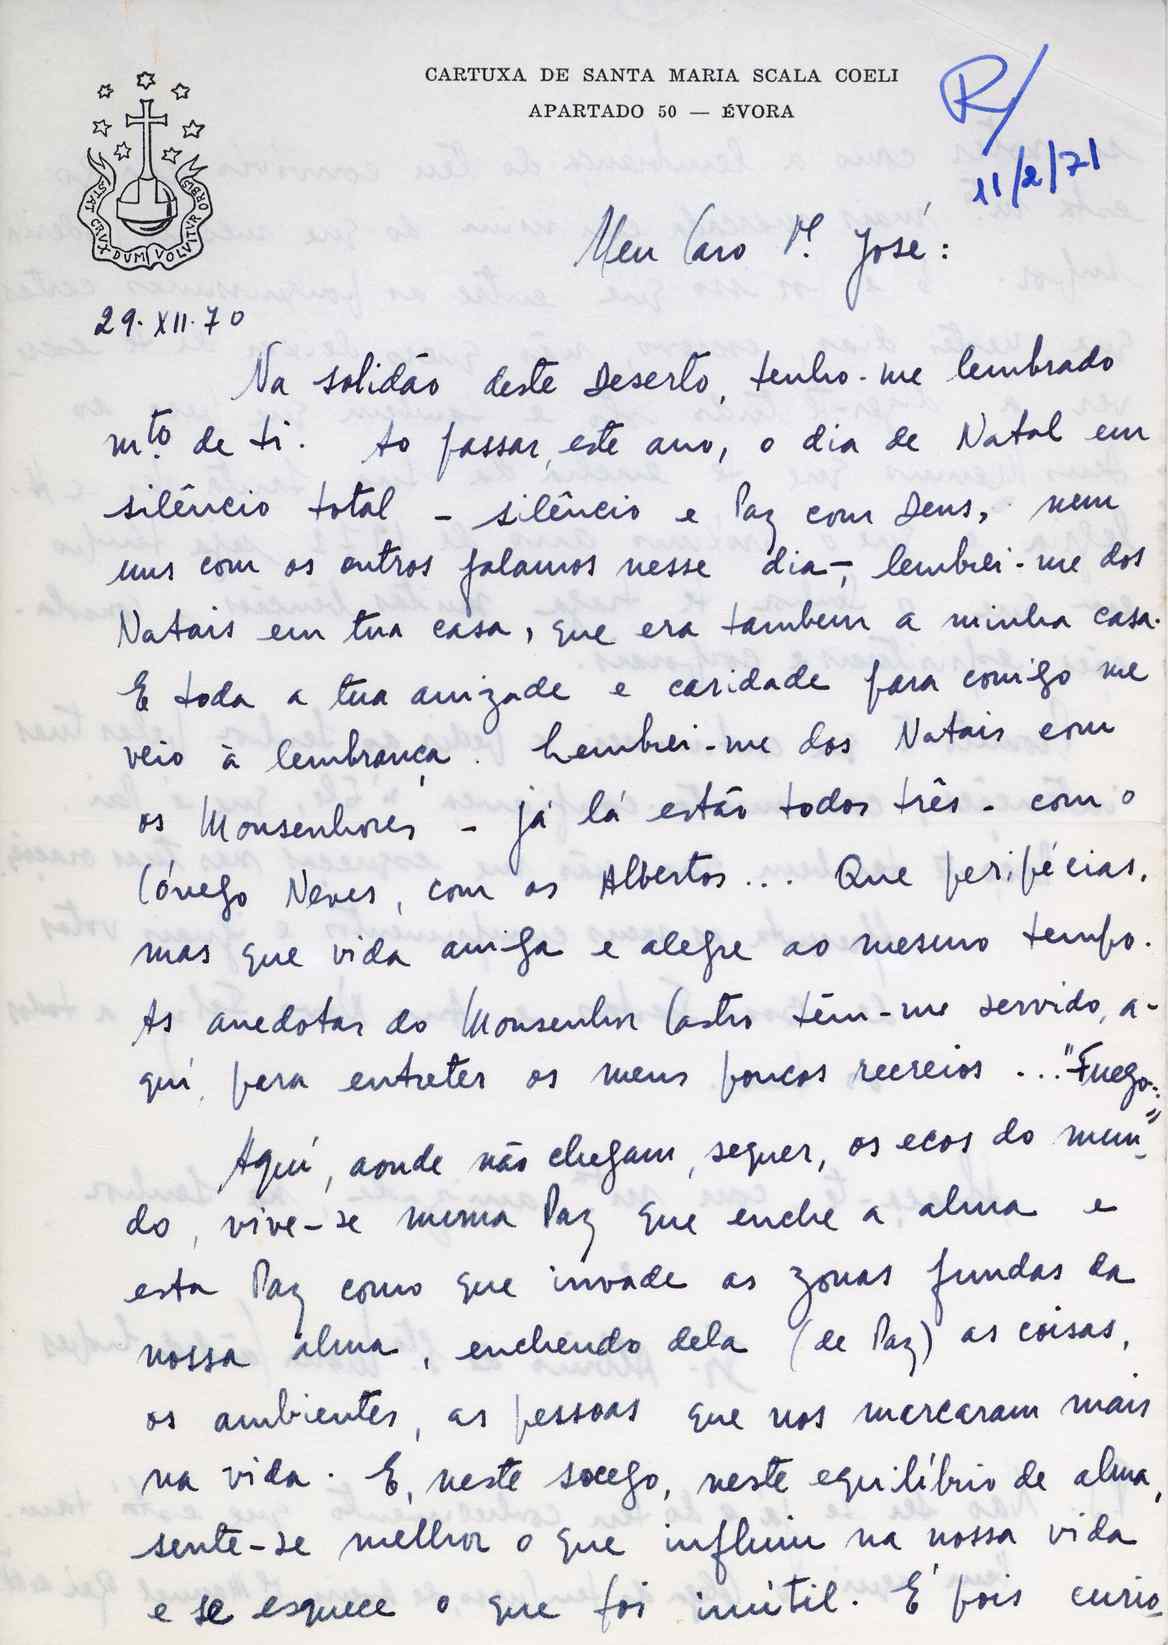 CARTUXA DE SANTA MARIA SCALA COELI
APARTADO 50 — ÉVORA
R/
11/2/71
STAT CRUX DUM VOLVITUR ORBIS
Meu Caro P.e José:
29.XII.70
Na solidão deste Deserto, tenho-me lembrado
m.to de ti. Ao passar, este ano, o dia de Natal em
silêncio total - silêncio e Paz com Deus, nem
uns com os outros falamos nesse dia -, lembrei-me dos
Natais em tua casa, que era tambem a minha casa.
E toda a tua amizade e caridade para comigo me
veio à lembrança. Lembrei-me dos Natais com
os Monsenhores - já lá estão todos três - com o
Cónego Neves, com os Albertos... Que peripécias,
mas que vida amiga e alegre ao mesmo tempo.
As anedotas do Monsenhor Castro têm-me servido, a-
qui, para entreter os meus poucos recreios... "Fuego..."
Aqui, aonde não chegam, sequer, os ecos do mun-
do, vive-se numa Paz que enche a alma e
esta Paz como que invade as zonas fundas da
nossa alma, enchendo dela (de Paz) as coisas,
os ambientes, as pessoas que nos marcaram mais
na vida. E, neste socego, neste equilíbrio de alma,
sente-se melhor o que influiu na nossa vida
e se esquece o que foi inútil. É pois curio-